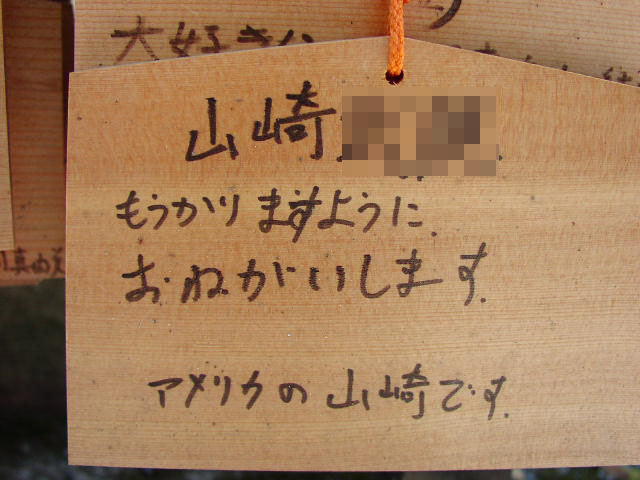 大好き
山崎
もうかりますように.
おねがいします.
アメリカの山崎です.
真由美